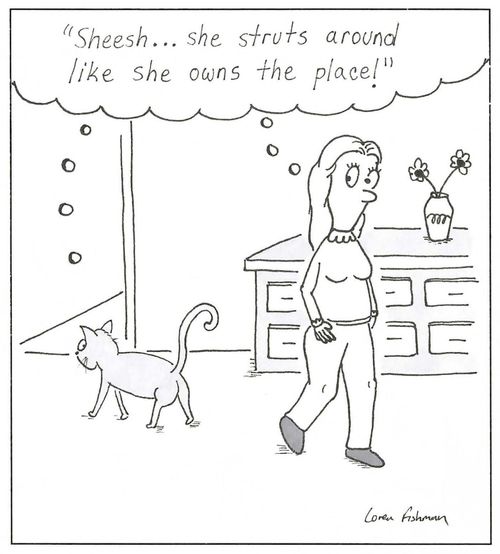 "Sheesh... she struts around
like she owns the place!"
Loren Fishman